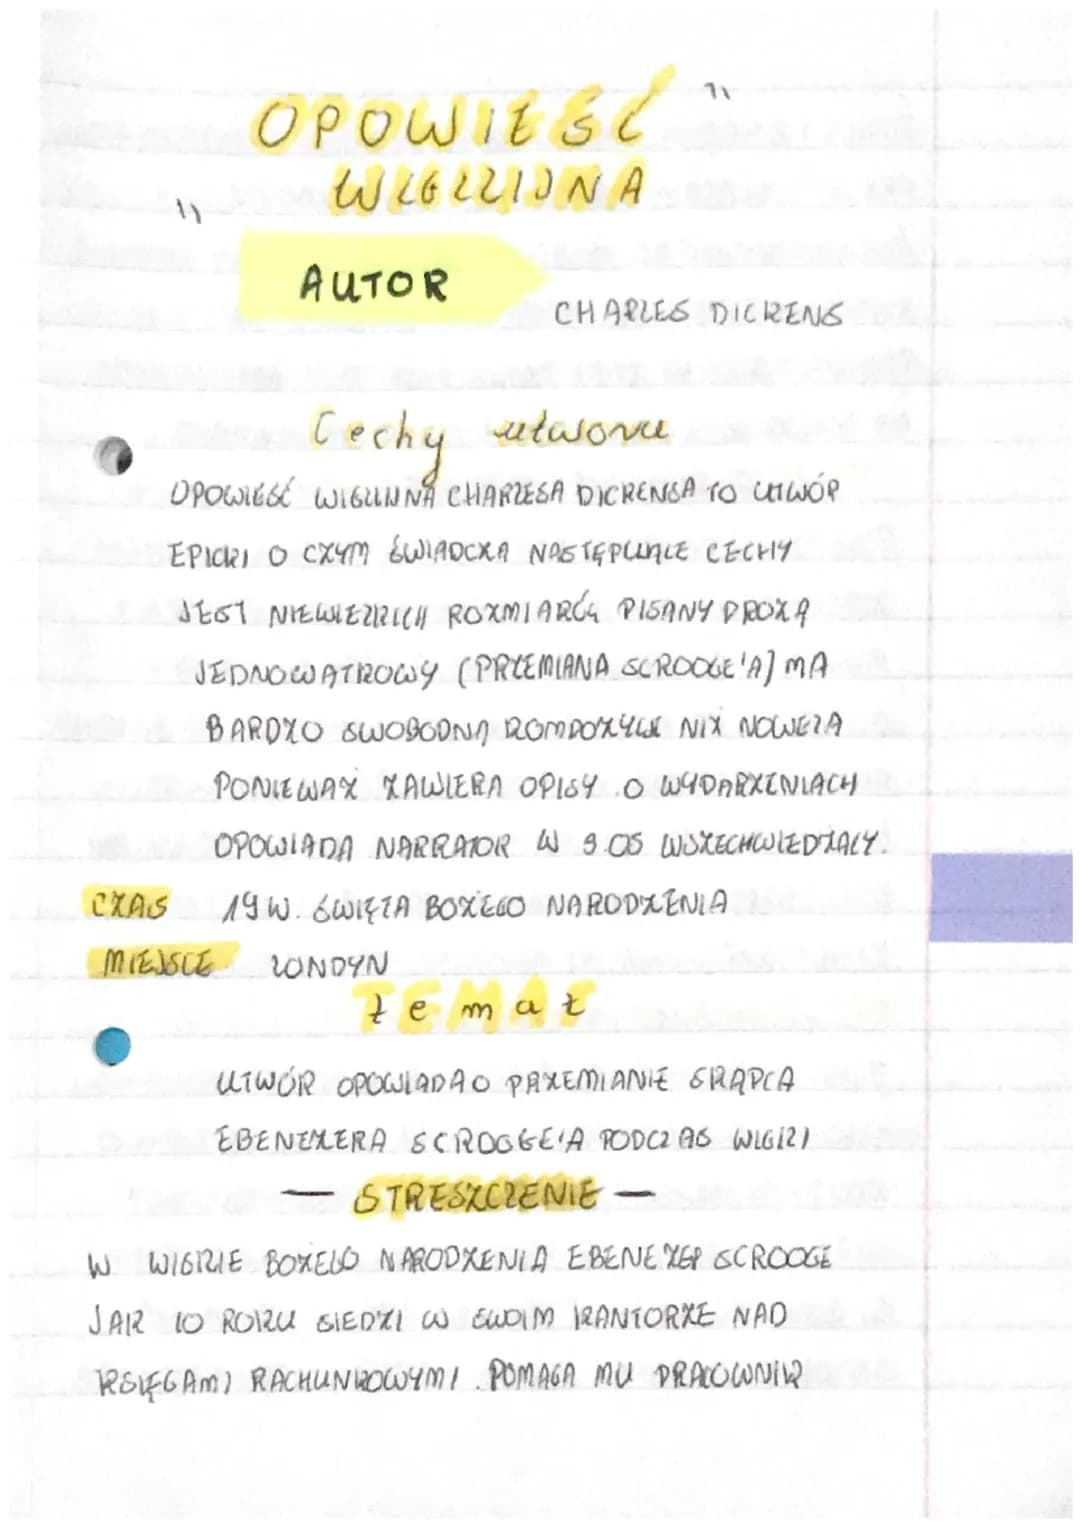 "OPOWIEŚĆ
WIGILIJNA"
AUTOR
CHARLES DICKENS
Cechy utworu
OPOWIEŚĆ WIGILIJNA CHARLESA DICKENSA TO UTWÓR
EPICKI O CZYM ŚWIADCZĄ NASTĘPUJĄCE CECHY
JEST NIEWIELKICH ROZMIARÓW PISANY PROZĄ
JEDNOWĄTKOWY (PRZEMIANA SCROOGE'A) MA
BARDZO SWOBODNĄ KOMPOZYCJE NIŻ NOWELA
PONIEWAŻ ZAWIERA OPISY. O WYDARZENIACH
OPOWIADA NARRATOR W 3 OS WSZECHWIEDZĄCY.
CZAS 19 W. ŚWIĘTA BOŻEGO NARODZENIA
MIEJSCE LONDYN
temat
UTWÓR OPOWIADA O PRZEMIANIE SKĄPCA
EBENEZERA SCROOGE'A PODCZAS WIGILI
— STRESZCZENIE —
W WIGILIE BOŻEGO NARODZENIA EBENEZER SCROOGE
JAK CO ROKU SIEDZI W SWOIM KANTORZE NAD
KSIĘGAMI RACHUNKOWYMI. POMAGA MU PRACOWNIK